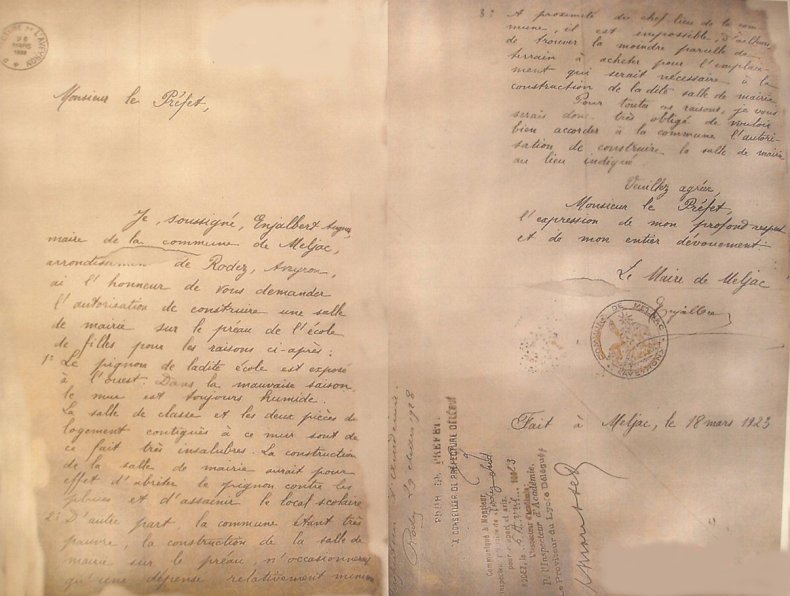 Monsieur le Préfet,
Je, soussigné, Enjalbert
maire de la commune de Meljac,
arrondissement de Rodez, Aveyron,
ai l'honneur de vous demander
l'autorisation de construire une salle
de mairie sur le préau de l'école
de filles pour les raisons ci-après:
1° Le pignon de ladite école est exposé
à l'Ouest. Dans la mauvaise saison,
le mur est toujours humide.
La salle de classe et les deux pièces de
logement contiguës à ce mur sont de
ce fait très insalubres. La construction
de la salle de mairie aurait pour
effet d'abriter le pignon contre les
pluies et d'assainir le local scolaire
2° D'autre part, la commune étant très
pauvre, la construction de la salle de
mairie sur le préau, n'occasionnerait
qu'une dépense relativement
3° A proximité du chef-lieu de la com-
mune, il est impossible, d'ailleurs,
de trouver la moindre parcelle de
terrain à acheter pour l'emplace-
ment qui serait nécessaire à la
construction de la dite salle de mairie
Pour toutes ces raisons, je vous
serais donc très obligé de vouloir
bien accorder à la commune l'autori-
sation de construire la salle de mairie
au lieu indiqué
Veuillez agréer,
Monsieur le Préfet,
l'expression de mon profond respect
et de mon entier dévouement.
Le Maire de Meljac
Enjalbert
COMMUNE DE MELJAC (AVEYRON)
Fait à Meljac, le 18 mars 1923
POUR LE PREFET
LE CONSEILLER DE PRÉFECTURE DÉLÉGUÉ
Communiqué à Monsieur
pour rapport et avis.
RODEZ, le
L'Inspecteur d'Académie,
P. l'Inspecteur d'Académie
Le Proviseur du Lycée Délégué